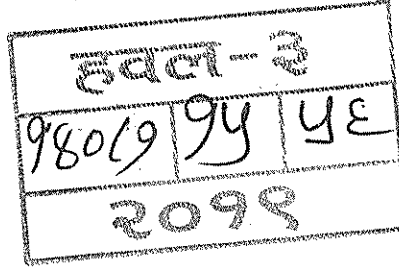 हवल-३
१४०७ १५ ५६
२०१९